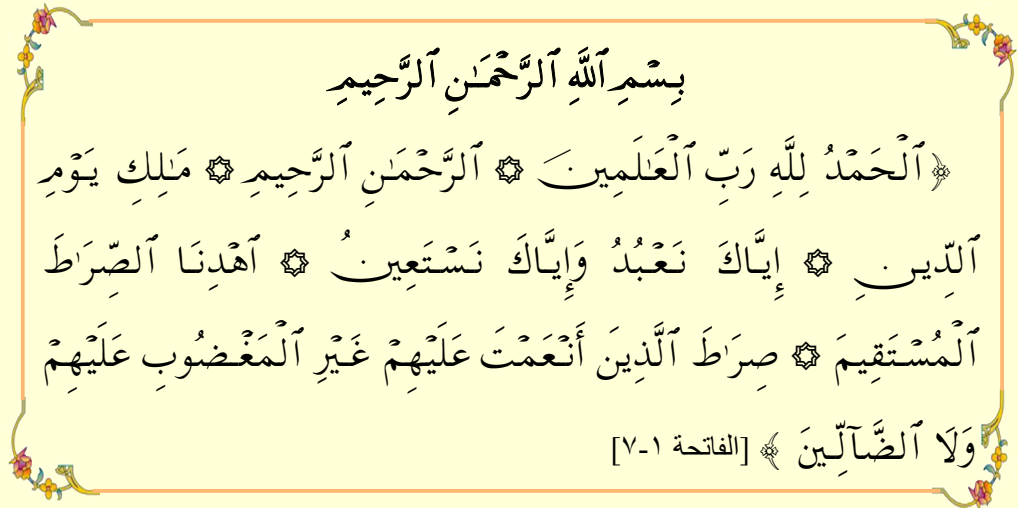 بِسْمِ ٱللَّهِ ٱلرَّحْمَـٰنِ ٱلرَّحِيمِ
﴿ٱلْحَمْدُ لِلَّهِ رَبِّ ٱلْعَـٰلَمِينَ ۞ ٱلرَّحْمَـٰنِ ٱلرَّحِيمِ ۞ مَـٰلِكِ يَوْمِ
ٱلدِّينِ ۞ إِيَّاكَ نَعْبُدُ وَإِيَّاكَ نَسْتَعِينُ ۞ ٱهْدِنَا ٱلصِّرَٰطَ
ٱلْمُسْتَقِيمَ ۞ صِرَٰطَ ٱلَّذِينَ أَنْعَمْتَ عَلَيْهِمْ غَيْرِ ٱلْمَغْضُوبِ عَلَيْهِمْ
وَلَا ٱلضَّآلِّينَ ﴾ [الفاتحة ١-٧]